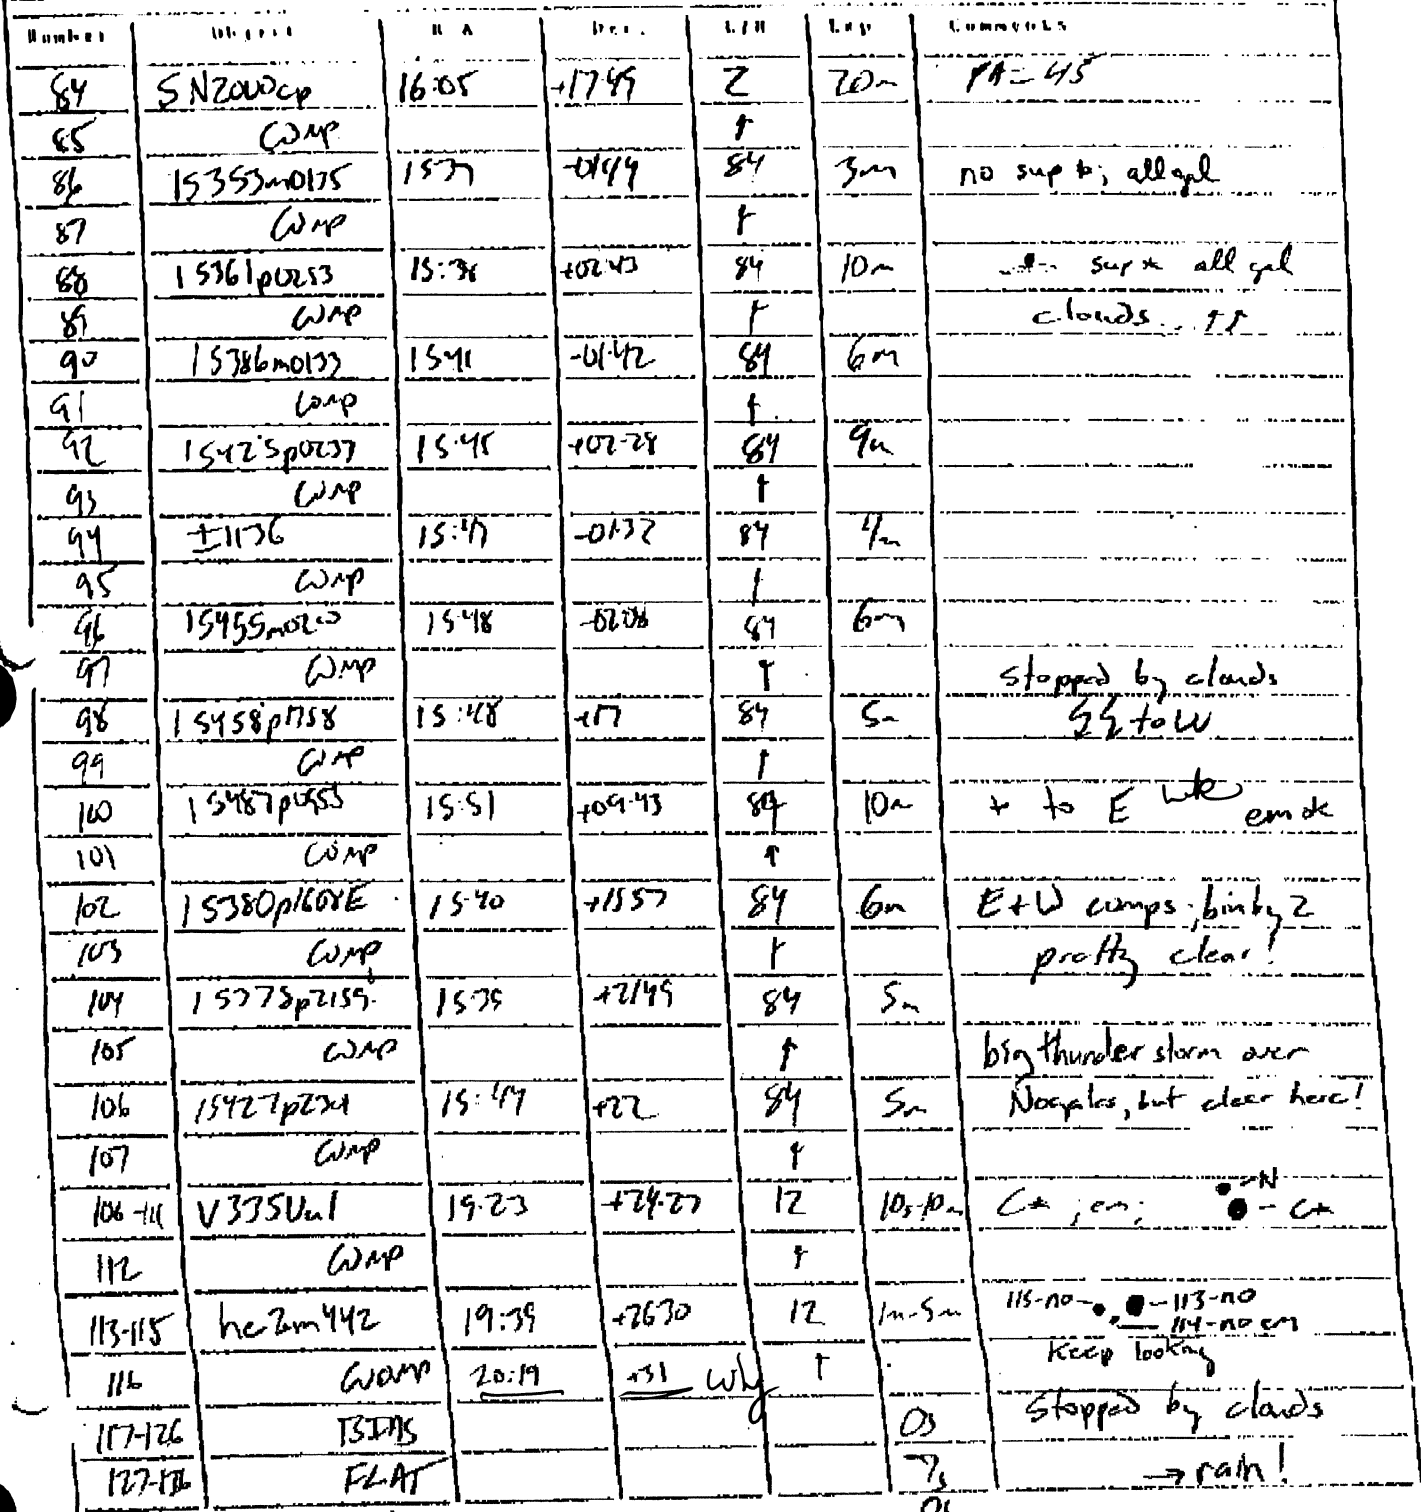 Number Object R A Dec. Exp Comments
84 SN2000cp 16:05 +1749 2 20m PA=45
85 comp ↑
86 15353m0135 1537 -0144 84 3m no sup *; all gal
87 comp ↑
88 15361p0253 15:38 +02:43 84 10m sup * all gal
89 comp ↑ clouds.. ↑↑
90 15386m0133 1541 -01:42 84 6m
91 comp ↑
92 15425p0237 15:45 +02:28 84 9m
93 comp ↑
94 I1136 15:47 -0132 84 4m
95 comp
96 15:48 -0208 84 6m
97 comp ↑ stopped by clouds
98 15458p1758 15:48 +17 84 5m to W
99 comp ↑
100 15487p0953 15:51 +09:43 84 10m * to E em ok
101 comp ↑
102 15380p1608E 15:40 +1557 84 6m E+W comps; 2
103 comp ↑ pretty clear!
104 15375p2159 15:39 +2149 84 5m
105 comp ↑ big thunder storm over
106 15:44 +22 84 5m Nogales, but clear here!
107 comp ↑
-111 V335Vul 19:23 +24:27 12 10s-10m C*; em; -N - C*
112 comp ↑
113-115 19:39 +2630 12 1m-5m 115-no - - 113-no
- 114-no em
Keep looking
116 comp 20:19 +31 why ↑
117-126 BIAS 0s stopped by clouds
FLAT 7s → rain!